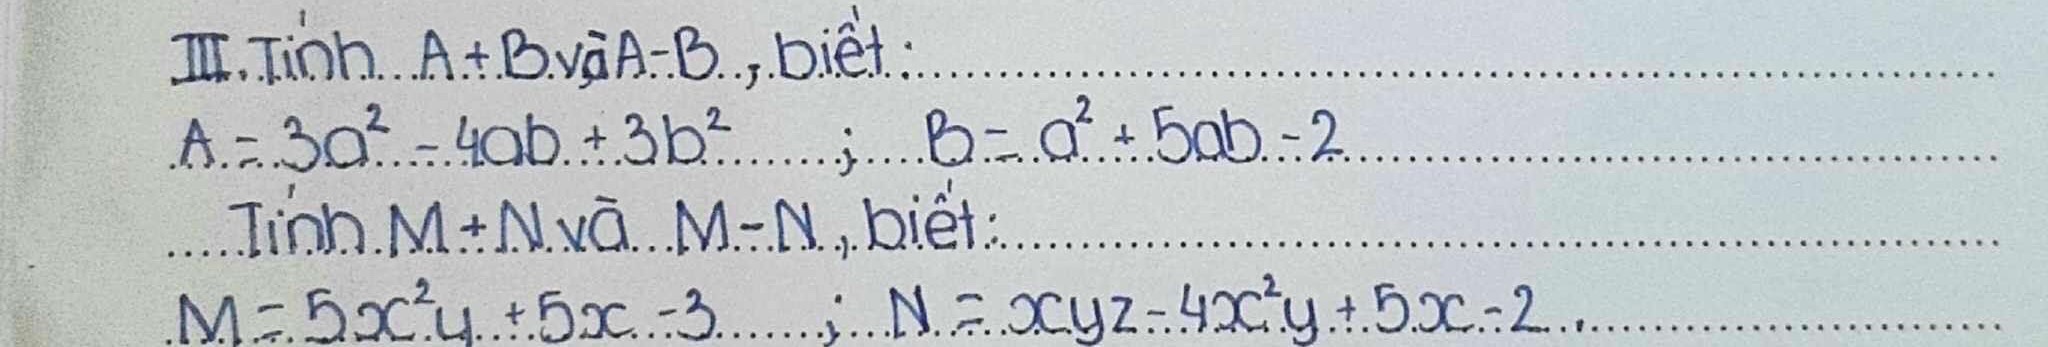 III. Tính A + B và A - B, biết:
A = 3a² - 4ab + 3b² ; B = a² + 5ab - 2
Tính M + N và M - N, biết:
M = 5x²y + 5x - 3 ; N = xyz - 4x²y + 5x - 2.